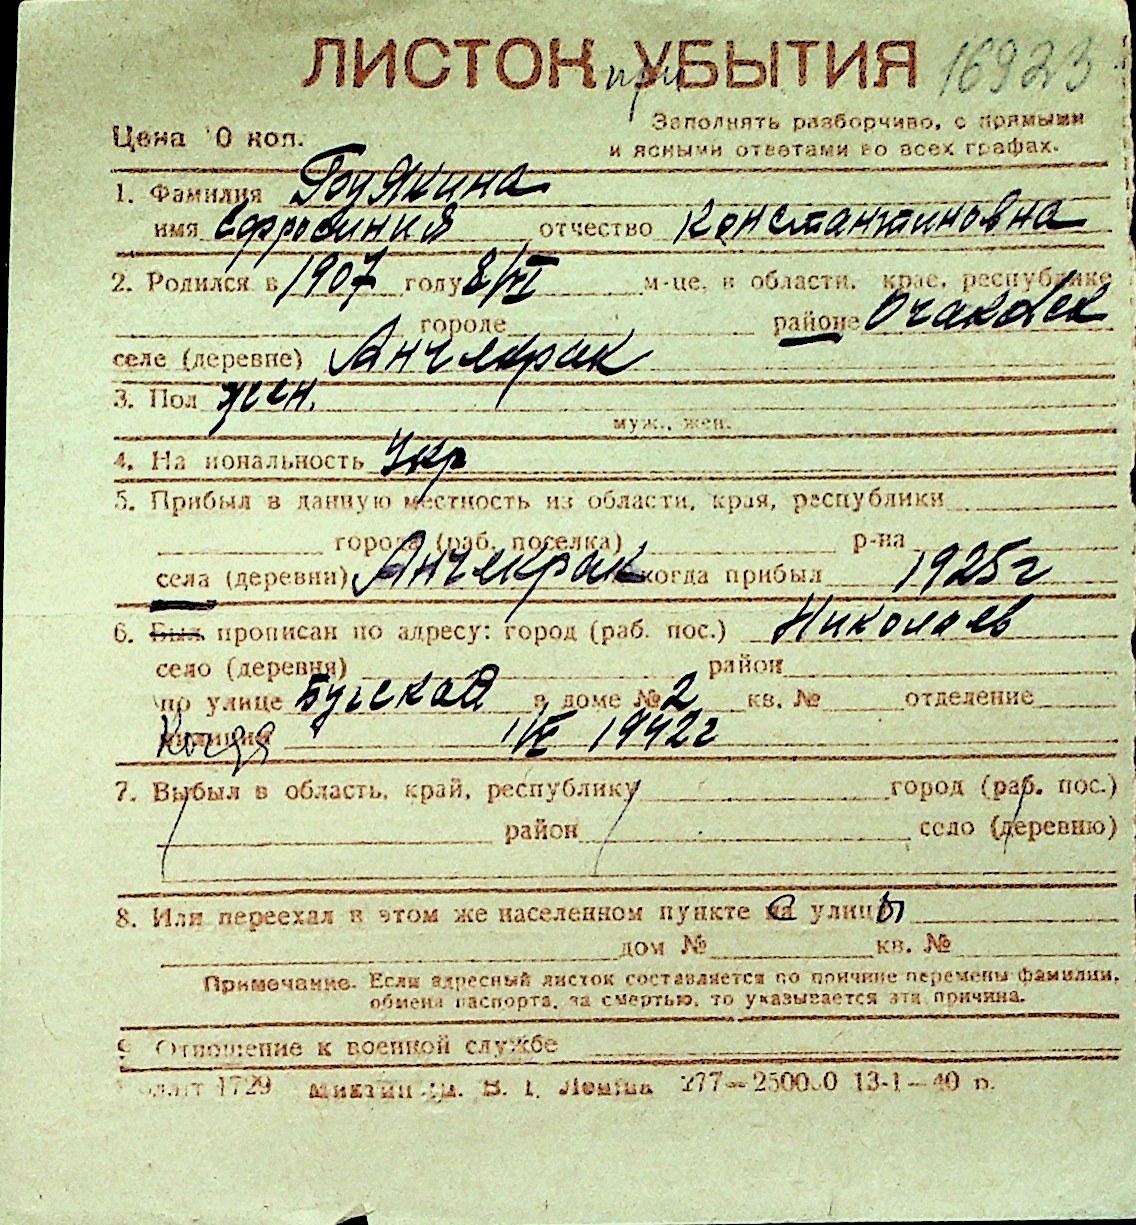 ЛИСТОК при УБЫТИЯ 16923
Цена 10 коп. Заполнять разборчиво, с прямыми
и ясными ответами во всех графах.
1. Фамилия
имя Ефросиния отчество Константиновна
2. Родился в 1907 году 8/VI м-це, в области, крае, республике
городе районе Очаковск
селе (деревне) Анчекрак
3. Пол жен.
муж., жен.
4. Национальность Укр
5. Прибыл в данную местность из области, края, республики
города (раб. поселка) р-на
села (деревни) Анчекрак когда прибыл 1925г
6. Был прописан по адресу: город (раб. пос.) Николаев
село (деревня) район
по улице Бугская в доме № 2 кв. № отделение
милиции Когда 1942г
7. Выбыл в область, край, республику город (раб. пос.)
район село (деревню)
8. Или переехал в этом же населенном пункте на с улицы
дом № кв. №
Примечание. Если адресный листок составляется по причине перемены фамилии,
обмена паспорта, за смертью, то указывается эта причина.
9. Отношение к военной службе
1729 ім. В. І. Леніна 13-1-40 р.